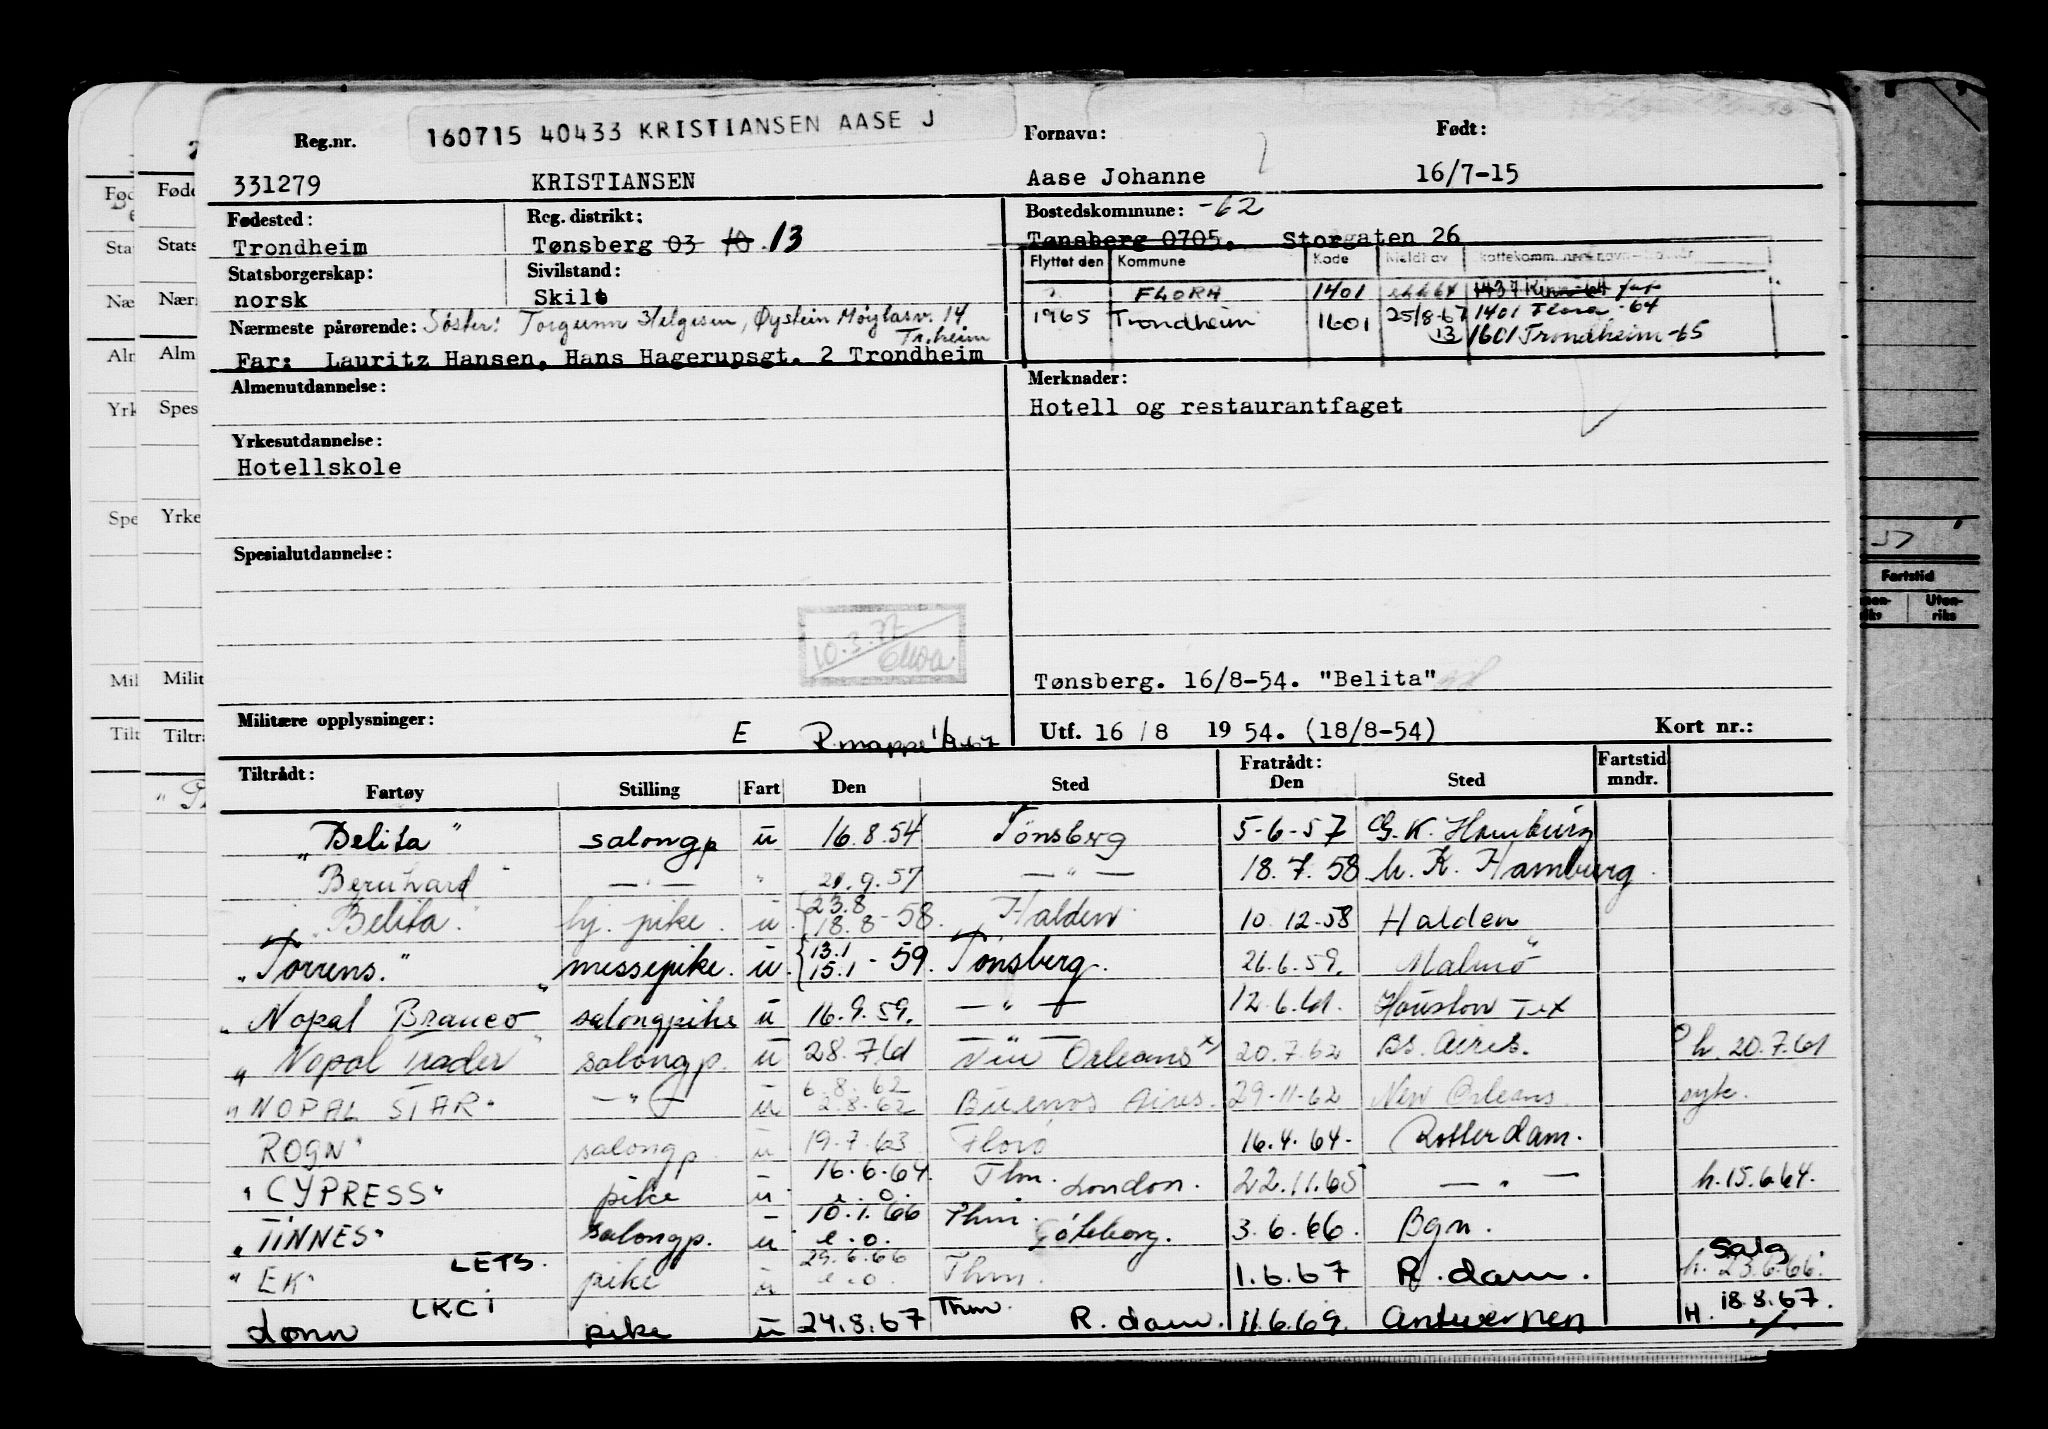 160715 40433 KRISTIANSEN AASE J
Reg.nr. Fornavn: Født:
331279 KRISTIANSEN Aase Johanne 16/7-15
Fødested: Reg. distrikt: Bostedskommune: -62
Trondheim Tønsberg 03 10 .13 Tønsberg 0705. Storgaten 26
Statsborgerskap: Sivilstand: Flyttet den Kommune Kode Meldt av
norsk Skilt FLORA 1401 1437 Kinn-64
Nærmeste pårørende: Søster: Torgunn Helgesen, Øystein Møylasv. 14 Tr.heim
1965 Trondheim 1601 25/8-67 1401 Flora -64
13 1601 Trondheim-65
Far: Lauritz Hansen, Hans Hagerupsgt. 2 Trondheim
Almenutdannelse: Merknader:
Hotell og restaurantfaget
Yrkesutdannelse:
Hotellskole
Spesialutdannelse:
10.3.72
Tønsberg. 16/8-54. "Belita"
Militære opplysninger: E R.mappe Utf. 16/8 1954. (18/8-54) Kort nr.:
Tiltrådt: Fratrådt: Fartstid
Fartøy Stilling Fart Den Sted Den Sted mndr.
"Belita" salongp u 16.8.54 Tønsberg 5-6-57 G.K. Hamburg
Bernhard — " — " 21.9.57 — " — 18.7.58 h. K. Hamburg.
"Belita" hj. pike. u. {23.8 18.8-58. Halden 10.12-58 Halden
"Torrens." messepike. u. {13.1 15.1-59. Tønsberg. 26.6.59. Malmø
"Nopal Branco" salongpike u 16.9.59. — " — 12.6.61. Houston Tex
"Nopal Trader" salongp. u 28.7.61 New Orleans x) 20.7.62 Bs. Aires. h. 20.7.61
"NOPAL STAR" — " — u 6.8.62 2.8.62 Buenos Aires. 29-11-62 New Orleans. syk.
ROGN" salongp u 19.7.63 Florø 16.4.64- Rotterdam.
"CYPRESS" pike u. 16.6.64. e.o. Thm. London. 22.11.65 — " — h. 15.6.64.
"TINNES" salongp. u 10.1.66 e.o. Thm. Göteborg. 3.6.66. Bgn.
"EK" LETS. pike u 29.6.66 e.o. Thm. 1.6.67 R.dam. Salg h. 23.6.66.
Lønn LKCI pike u 24.8.67 Thm. R.dam. 11.6.69. Antwerpen H. 18.8.67.
Fød
Føde
Stats
Næ
Nær
Alm
Yrk
Spes
Spe
Yrke
Mil
Milit
Tilt
Tiltr
Fartstid
Uten-
riks